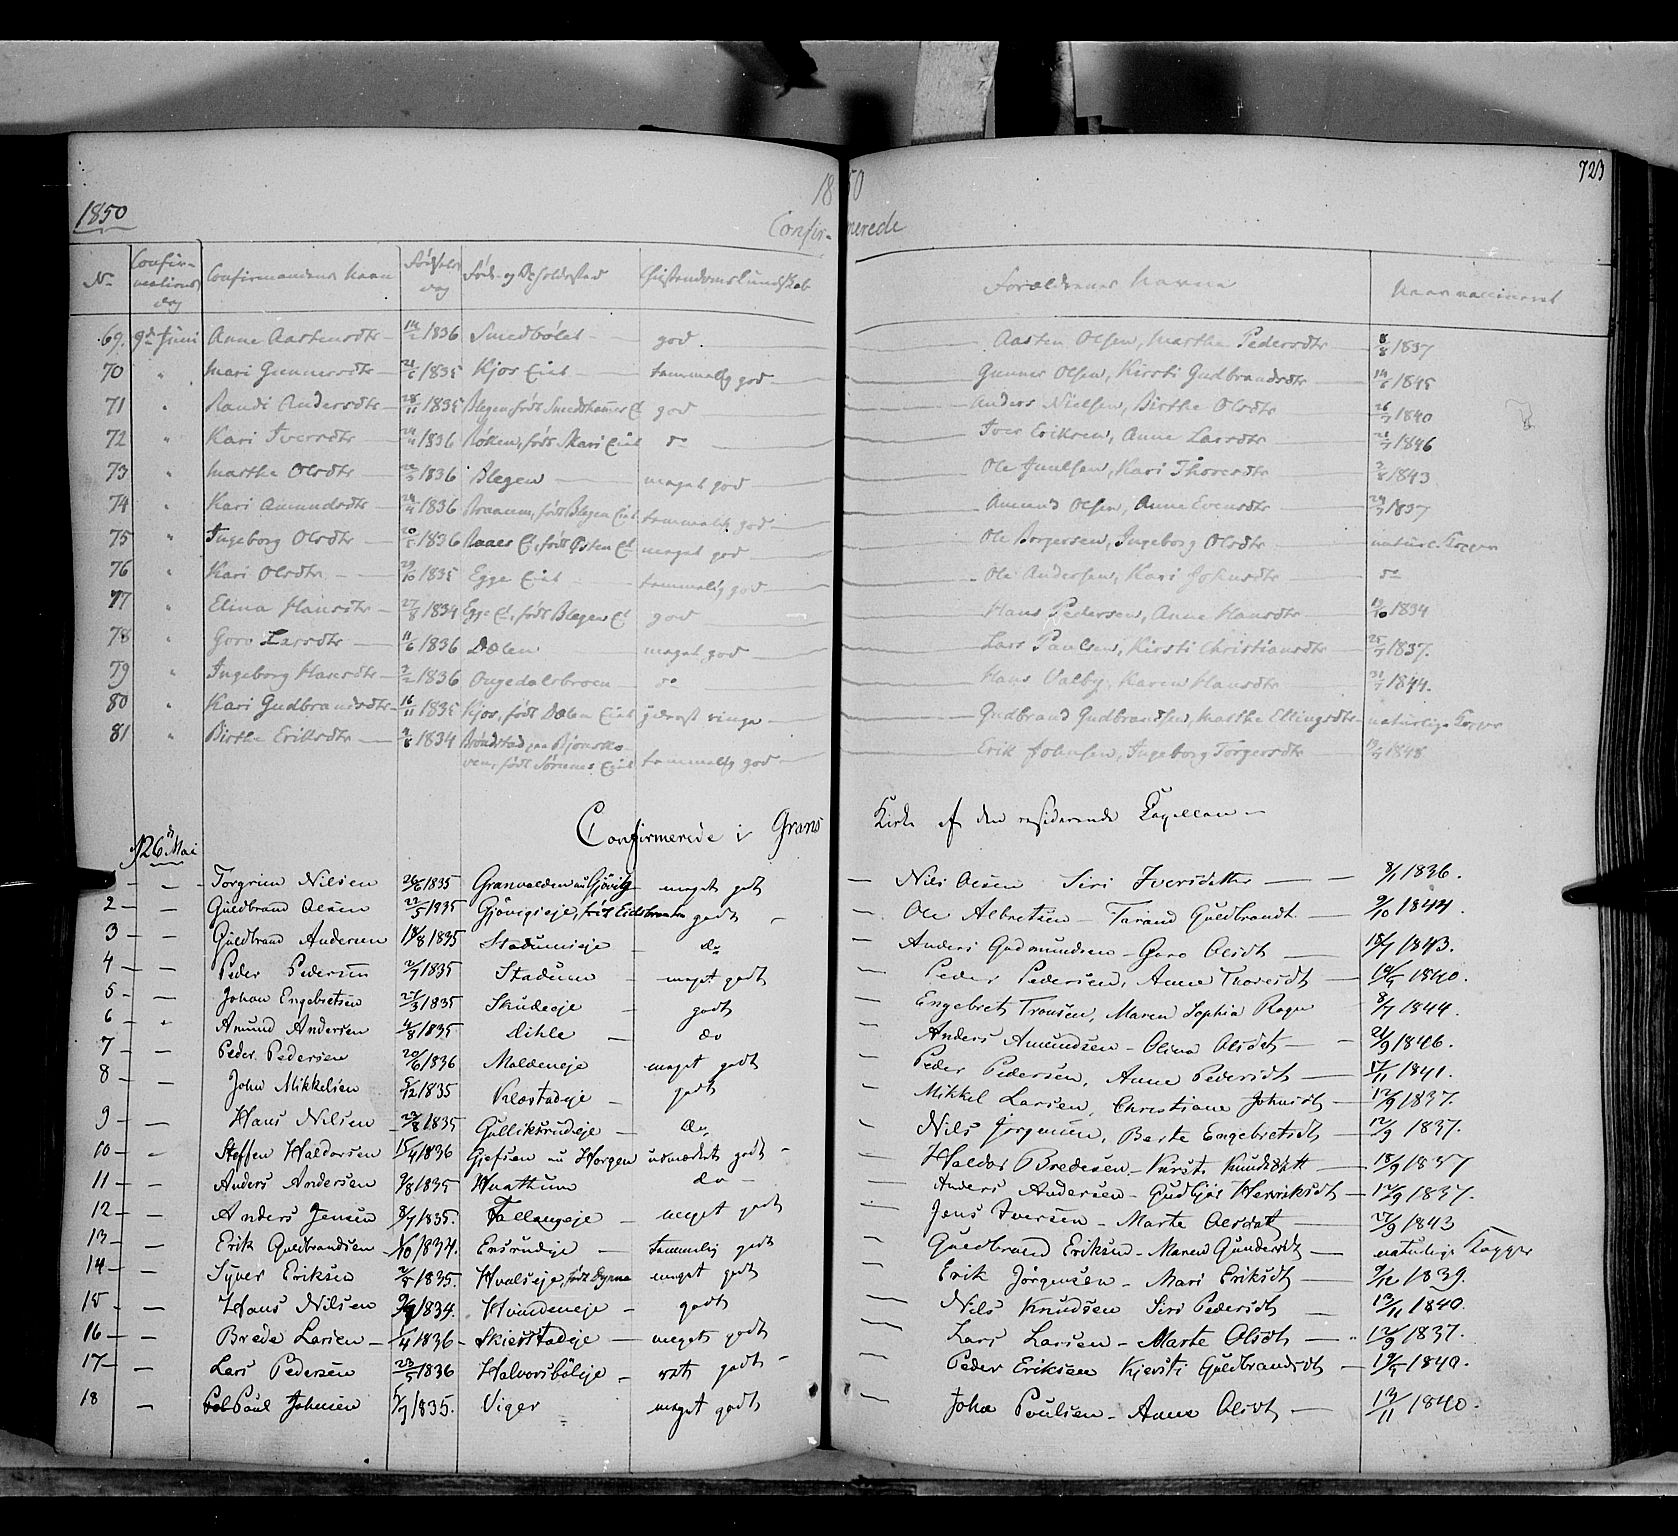 723
1850
1850
Confirmerede
No Confirmations dag Confirmandens Navn Fødsels dag Føde- og Opholdssted Christendomskundskab Forældrenes Navne Naar vaccineret
69. 9de Juni Anne Aastensdtr 14/2 1836 Smedbølet god Aasten Olsen, Marthe Pedersdtr 8/8 1837
70 " Mari Gunnersdtr 1835 Kjos Eiet temmelig god Gunner Olsen, Kirsti Gudbrandsdtr 1845
71 " Randi Andersdtr 28/11 1835 Blegen, født Smedshamer Et god Anders Nielsen, Birthe Olsdtr 26/7 1840
72 " Kari Iversdtr 1836 Røken, født Skari Eiet do Iver Eriksen, Anne Larsdtr 1846
73 " Marthe Olsdtr 1836 Blegen meget god Ole Juulsen, Kari Thoresdtr 1843
74 " Kari Amundsdtr 1836 Braanm, født Blegen Eiet temmelig god Amund Olsen, Anne Evensdtr 1837
75 " Ingeborg Olsdtr 1836 Raaes Et, født Østen Et meget god Ole Borgersen, Ingeborg Olsdtr naturl. Kopper
76 " Kari Olsdtr 29/10 1835 Egge Eiet temmelig god Ole Andersen, Kari Johnsdtr do
77 " Elina Hansdtr 27/8 1834 Egge Et, født Blegen Et god Hans Pedersen, Anne Hansdtr 19/10 1834
78 " Goro Larsdtr 11/6 1836 Dælen meget god Lars Paulsen, Kirsti Christiansdtr 25/7 1837.
79 " Ingeborg Hansdtr 1836 Ongedalsbroen do Hans Valby, Karen Hansdtr 1844.
80 " Kari Gudbrandsdtr 16/11 1835 Kjos, født Dælen Eiet yderst ringe Gudbrand Gudbrandsen, Marthe Ellingsdtr naturlige Kopper
81 " Birthe Eriksdtr 1834 Brøndstad paa Bjonsko-
ven, født Sørumes Eiet temmelig god Erik Johnsen, Ingeborg Torgersdtr 1848
Confirmerede i Grans Kirke af den residerende Capellan
26 Mai
Torgrim Nilsen 26/6 1835 Granvolden au Gjøvig meget godt Nils Olsen Siri Iversdatter 8/1 1836.
2 Guldbrand Olsen 22/5 1835 Gjøvigeje, født Eidsbraaten godt Ole Albretsen Tarand Guldbrandt 9/10 1844.
3 Guldbrand Andersen 18/8 1835 Stadumseje do Anders Gudmundsen Goro Olsdt 18/7 1843.
4 Peder Pedersen 2/7 1835 Stadum meget godt Peder Pedersen, Anne Thoresdt 1840.
5 Johan Engebretsen 27/3 1835 Skudeeje godt Engebret Tronsen, Maren Sophia 8/7 1844.
6 Amund Andersen 4/8 1835 Dihle do Anders Amundsen Olina Olsdt 21/9 1846.
7 Peder Pedersen 20/6 1836 Moldeneje meget godt Peder Pedersen, Anne Pedersdt 1841.
8 John Mikkelsen 5/12 1835 Klæstadeje godt Mikkel Larsen, Christiane Johnsdt 12/9 1837.
9 Hans Nilsen 23/8 1835 Gulliksrudeje do. Nils Jørgensen, Berte Engebretsdt 12/9 1837.
10 Steffen Haldorsen 15/4 1836 Gjefsen au Horgen udmærket godt Haldor Bredesen Kirsti Knudsdatt 18/9 1837
11 Anders Andersen 9/8 1835 Hvattum do Anders Andersen Gudbjør Henriksdt 12/9 1837.
12 Anders Jensen 8/7 1835. Fallangeje meget godt Jens Iversen Marte Olsdatt 27/9 1843
13 Erik Guldbrandsen 1/10 1834. Ensrudeje temmelig godt Guldbrand Eriksen Maren Gundersdt naturlige Kopper
14 Syver Eriksen 2/5 1835. Hvalseje, født Dynna meget godt Erik Jørgensen Mari Eriksdt 9/12 1839.
15 Hans Nilsen 1834. Hvindeneje godt Nils Knudsen Siri Pedersdt 13/11 1840.
16 Brede Larsen 1/4 1836 Skiærstadeje meget godt Lars Larsen Marte Olsdt 12/9 1837.
17 Lars Pedersen 23/5 1836 Halvorsbøleje ret godt Peder Eriksen Kjersti Guldbrandsdt 1840.
18 Paul Johnsen 5/7 1835. Viger meget godt John Poulsen Anne Olsdt 13/11 1840.